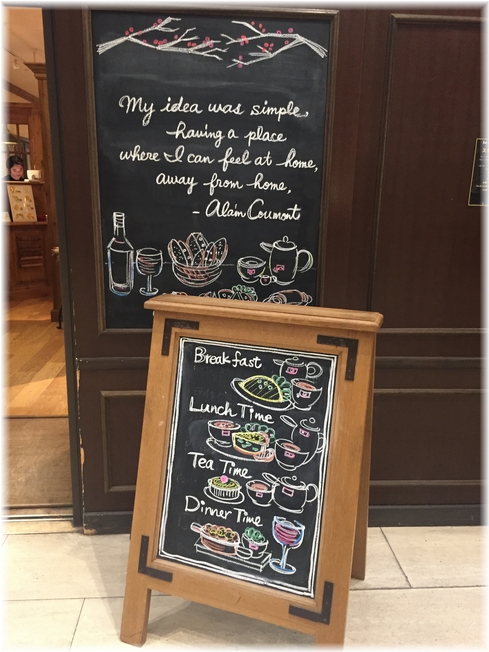 My idea was simple,
having a place
where I can feel at home,
away from home,
- Alain Coumont
Breakfast
Lunch Time
Tea Time
Dinner Time